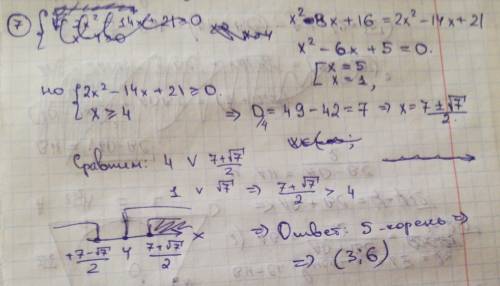 ⑦ 14x+21≥0
x²-8x+16=2x²-14x+21
x²-6x+5=0.
[x=5
x=1,
но {2x²-14x+21≥0.
x≥4
⇒ D/4=49-42=7 ⇒ x=(7±√7)/2
Сравним: 4 ∨ (7+√7)/2
1 ∨ √7 ⇒ (7+√7)/2 > 4
+(7-√7)/2 4 (7+√7)/2 x
⇒ Ответ: 5-корень ⇒
⇒ (3;6)